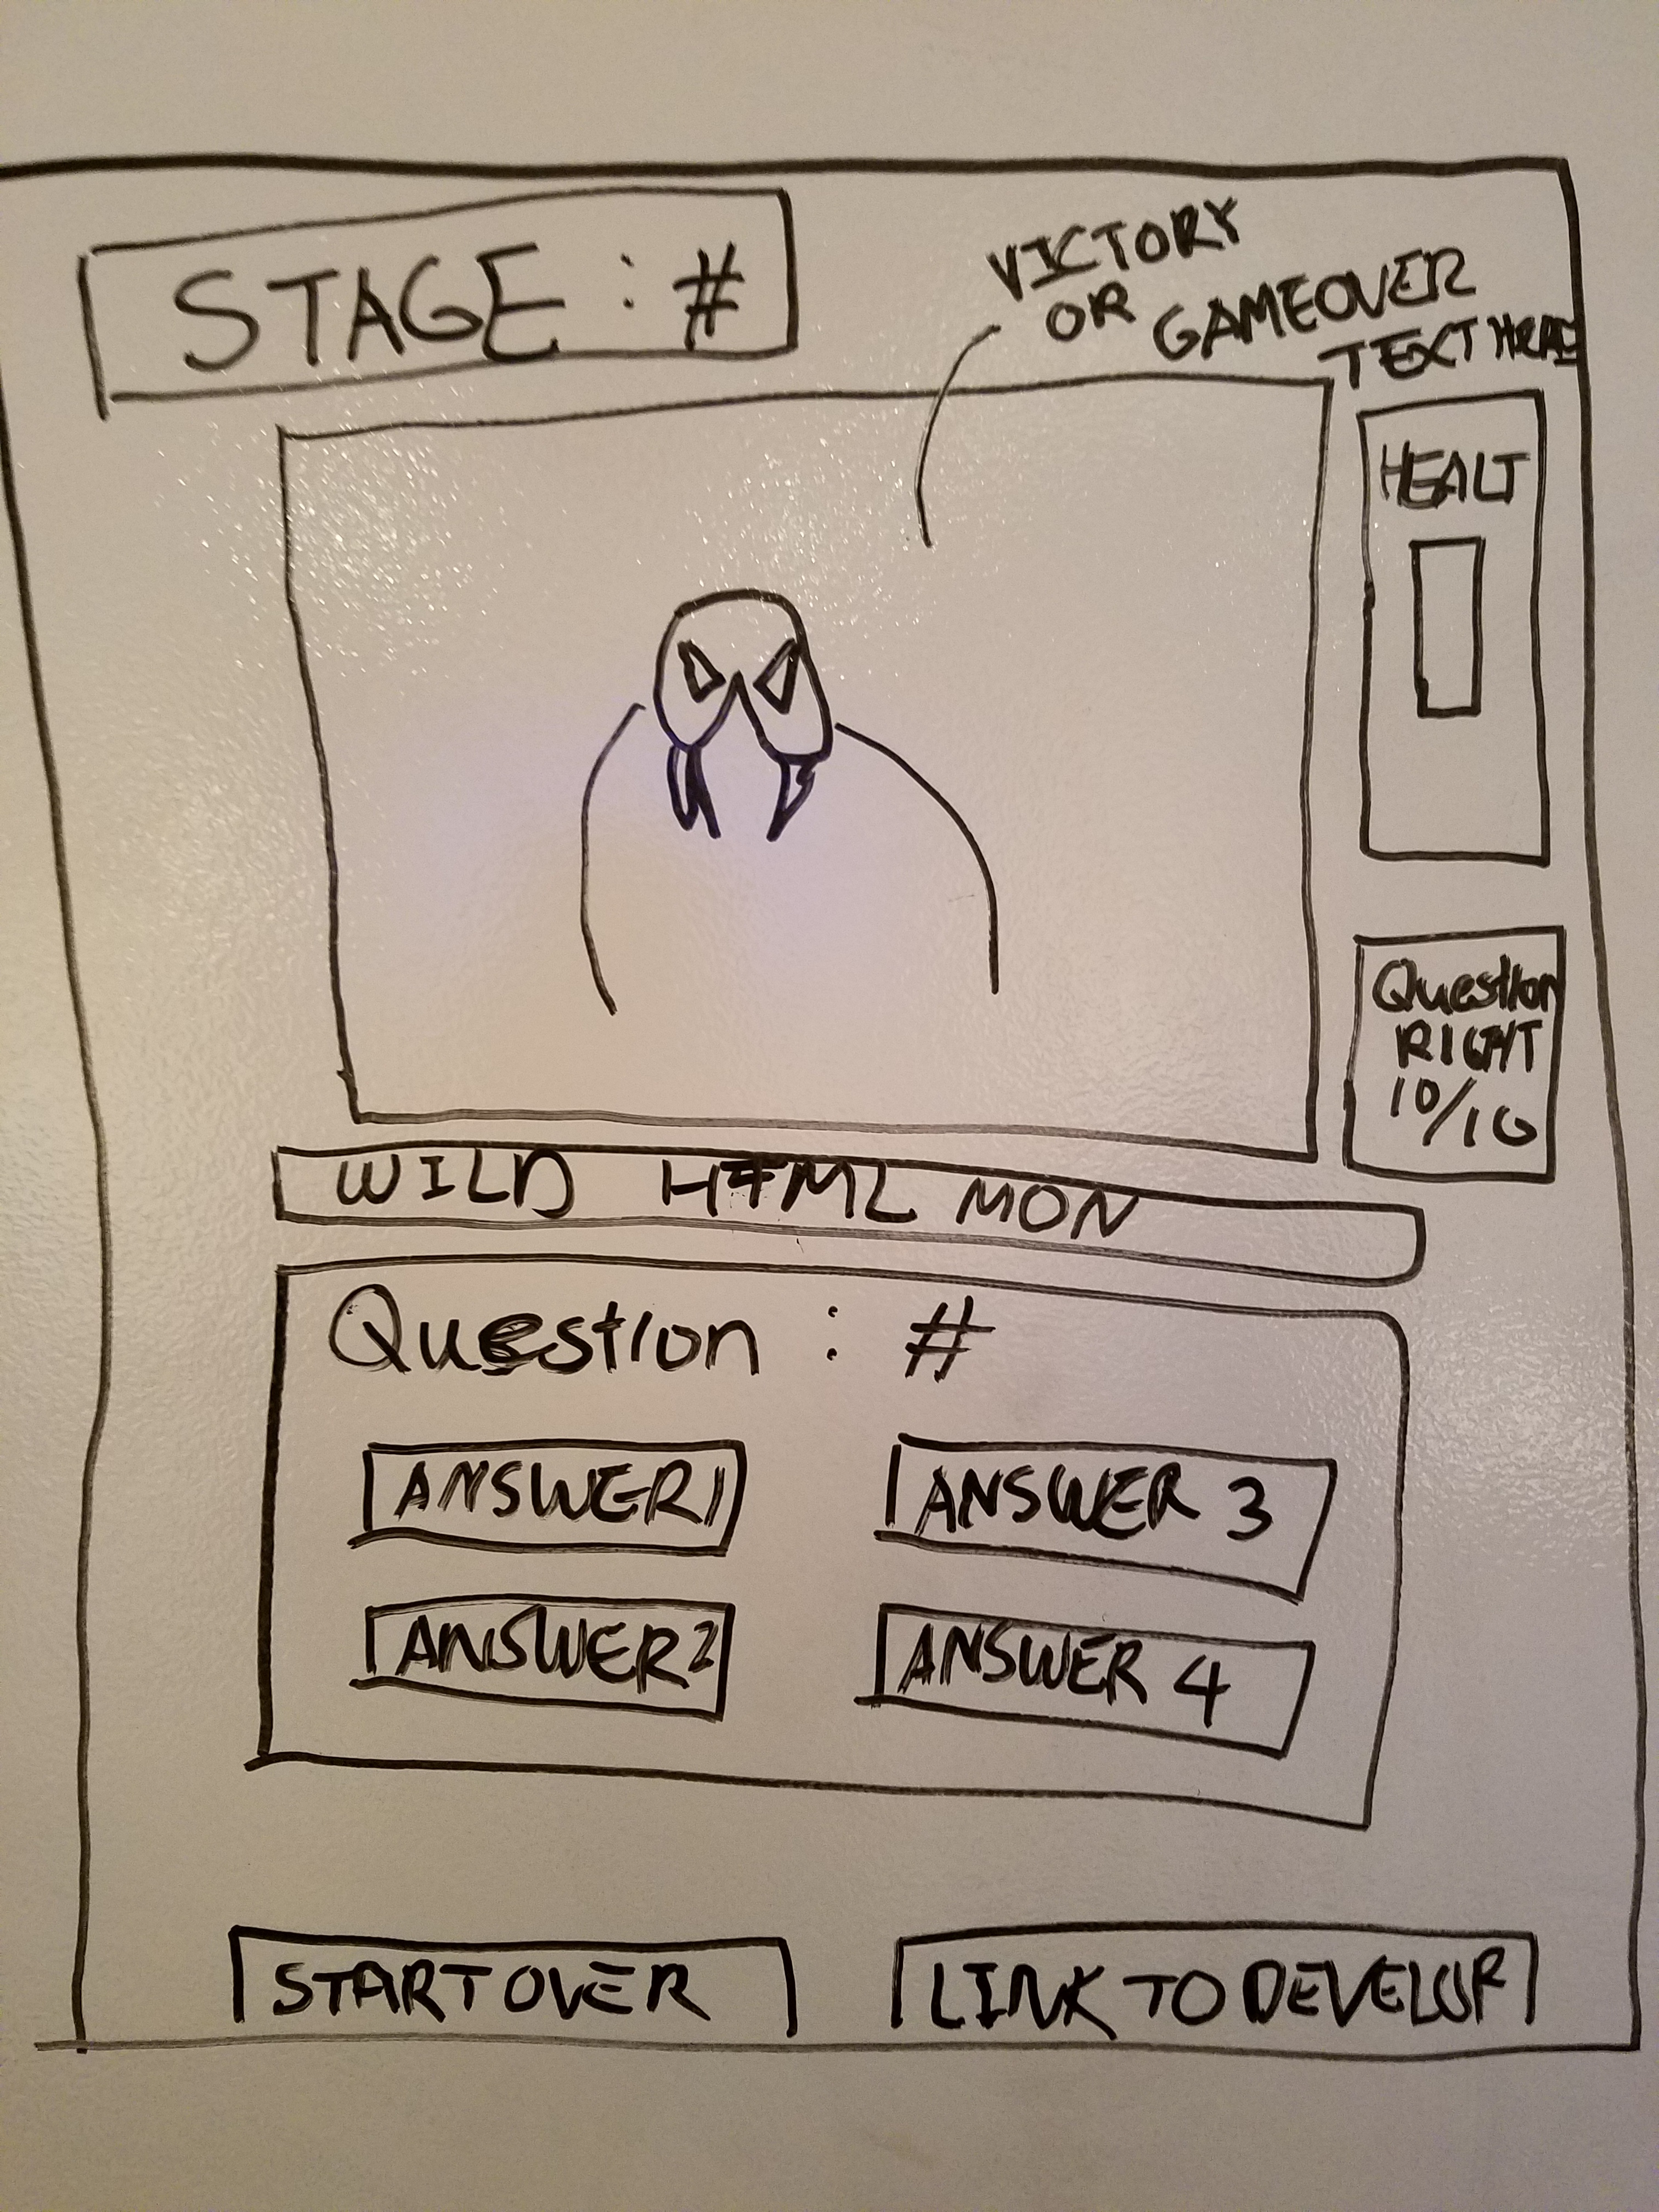 STAGE : #
VICTORY
OR GAMEOVER
TEXT HERE
HEALT
Question
RIGHT
10/10
WILD HTML MON
Question : #
ANSWER1
ANSWER 3
ANSWER2
ANSWER 4
START OVER
LINK TO DEVELOP